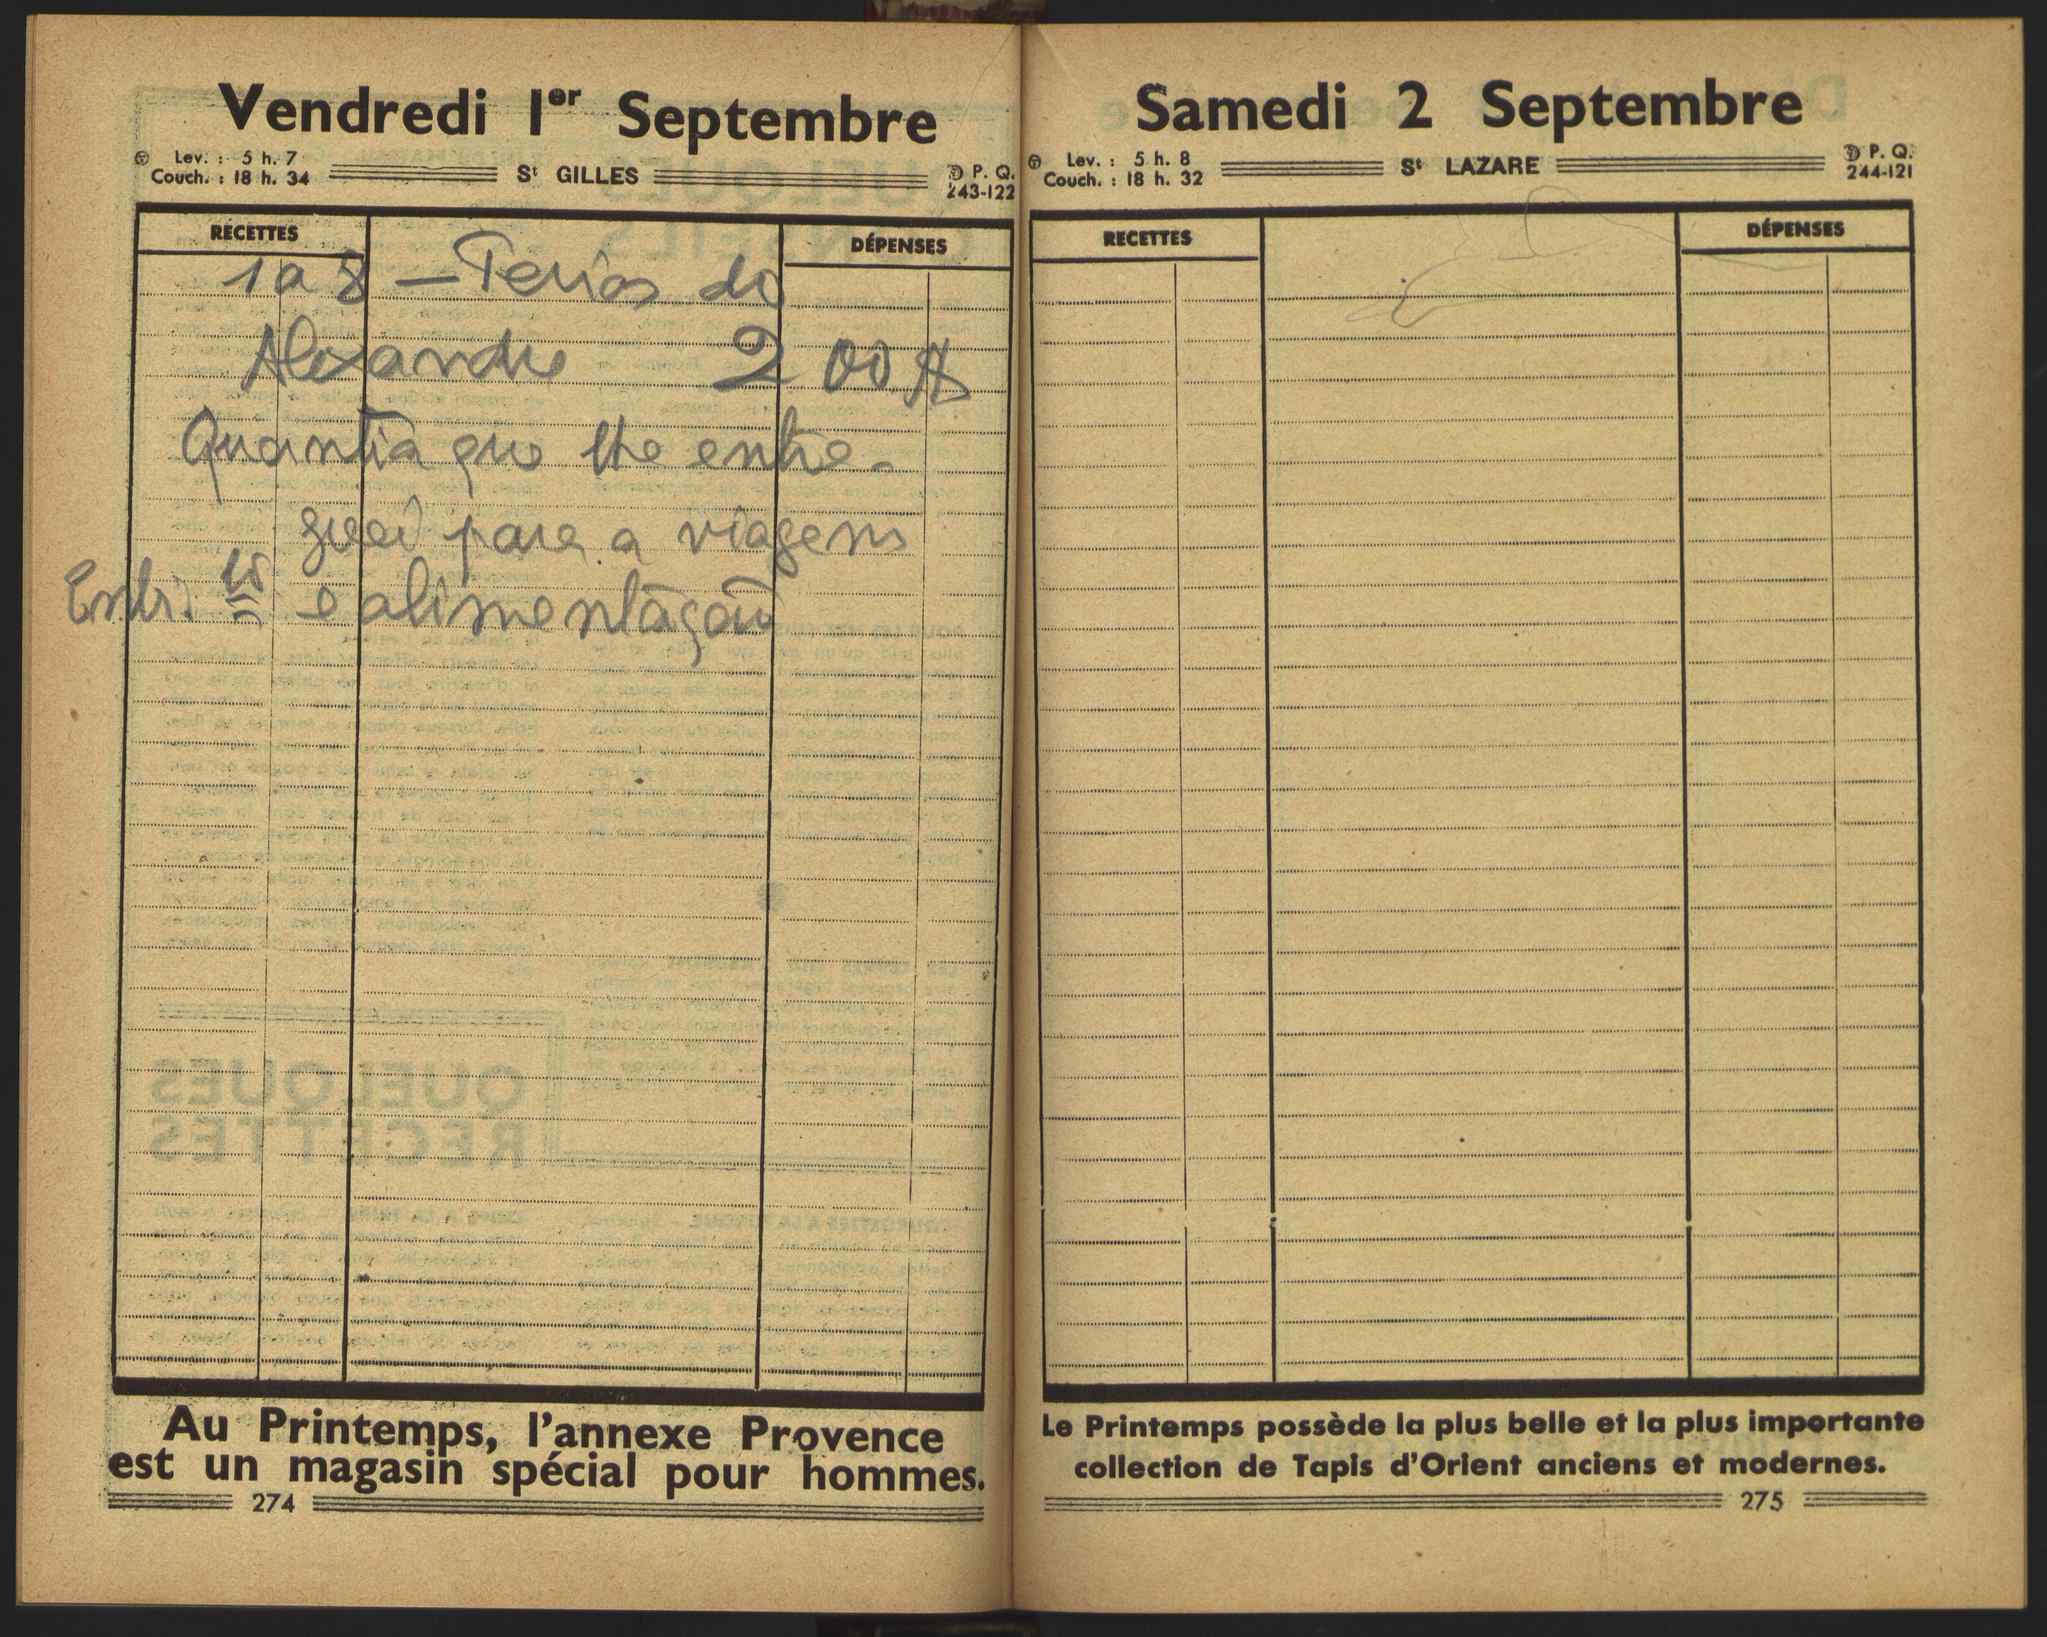 Vendredi 1er Septembre
Lev. : 5 h. 7
Couch. : 18 h. 34
St GILLES
P. Q.
243-122
RECETTES
DÉPENSES
1 a 8 — Ferias do
Alexandre 200 $
Quantia que lhe entre-
guei para a viagem
e alimentação
Au Printemps, l'annexe Provence
est un magasin spécial pour hommes.
274
Samedi 2 Septembre
Lev. : 5 h. 8
Couch. : 18 h. 32
St LAZARE
P. Q.
244-121
RECETTES
DÉPENSES
Le Printemps possède la plus belle et la plus importante
collection de Tapis d'Orient anciens et modernes.
275